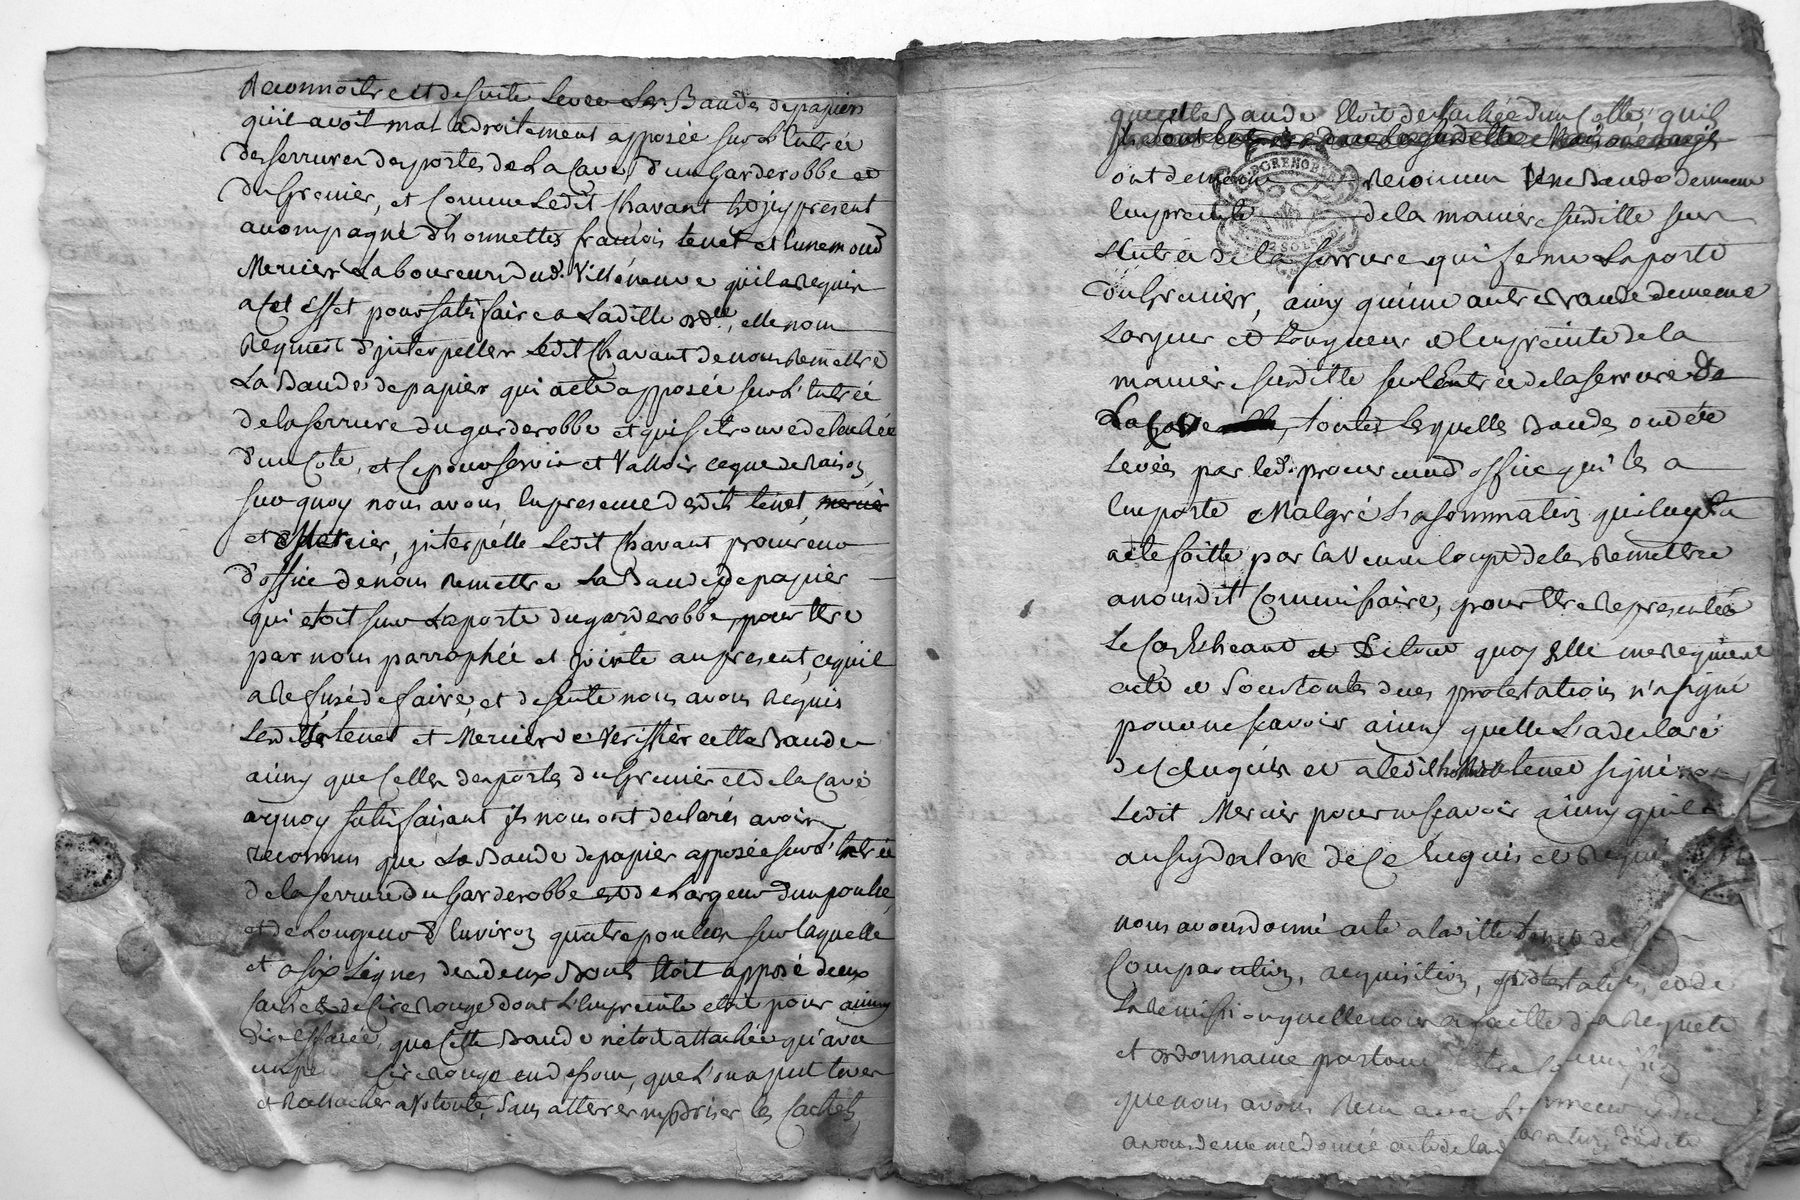 Reconnoitre et de suite levée les Bandes de papier
qu'il avoit mal adroitement apposée sur l'Entrée
des serrures des portes de la Cave, d'un Garderobbe et
du Grenier, et Comme Ledit Chavant icy present
accompagné d'honnettes francois tenet et
Mercier Laboureurs dud. Villeneuve qu'il a requis
a Cet Effet pour satisfaire a Ladille ord.ce, elle nous
Requiert d'jnterpeller Ledit Chavant de nous Remettre
La Bande de papier qui a été apposée sur L'Entrée
de la serrure du garderobbe et qui se trouve detachée
d'un Coté, et Ce pour servir et Valloir ce que de Raison,
sur quoy nous avons En presence desdits tenet, mercier
et Mercier, jnterpéllé Ledit Chavant procureur
d'office de nous Remettre La Bande de papier
qui etoit sur La porte du garderobbe, pour Etre
par nous parraphée et jointe au present, ce qu'il
a Refusé de faire, et de suite nous avons Requis
Lesdits tenet et Mercier de Veriffier cette Bande
ainsy que Celles des portes du Grenier et de la Cave
a quoy satisfaisant jls nous ont declarés avoir
reconnu que La Bande de papier apposée sur l'Entrée
de la serrure du Garderobbe est de Largeur d'un pouce,
et de Longueur d'Environ quatre pouces sur laquelle
et a six Lignes des deux Bouts Etoit apposé deux
Cachets de Cire Rouge dont L'Empreinte etoit pour ainsy
dire Effacée, que Cette Bande n'etoit attachée qu'avec
un peu Cire Rouge en dessous, que L'on a put Lever
et Rattacher a Volonté, sans alterer ny briser les Cachets
quelle Bande Etoit detachée d'un Cotté qu'ils
ont de meme Reconnu Une Bande de meme
Empreinte de la maniere susditte sur
L'Entrée de la serrure qui ferme La porte
du Grenier, ainsy qu'une autre Bande de meme
Largeur et Longueur et Empreinte de la
maniere susditte sur l'Entrée de la serrure de
La Cave, toutes Lesquelles Bandes ont été
Levées par led. procureur d'office qui les a
Emporté Malgré La sommation qui luy a
eté faitte par la Veuve de les Remettre
a nous dit Commissaire, pour Etre Representées
Le Cas Echeant et de tout quoy Elle nous Requiert
acte et sous toutes dues protestations n'a signé
pour ne scavoir ainsy quelle L'a declaré
de Ce Enquise et a ledit tenet signé non
Ledit Mercier pour ne scavoir ainsy qu'il a
aussy declaré de Ce Enquis et Requis
nous avons donné acte a laditte de sa
Comparution, requisition, protestation, et de
La Remission quelle nous a faitte de sa Requete
et ordonnance portant Notre Commission
que nous avons Recu avec
avons de meme donné acte de la